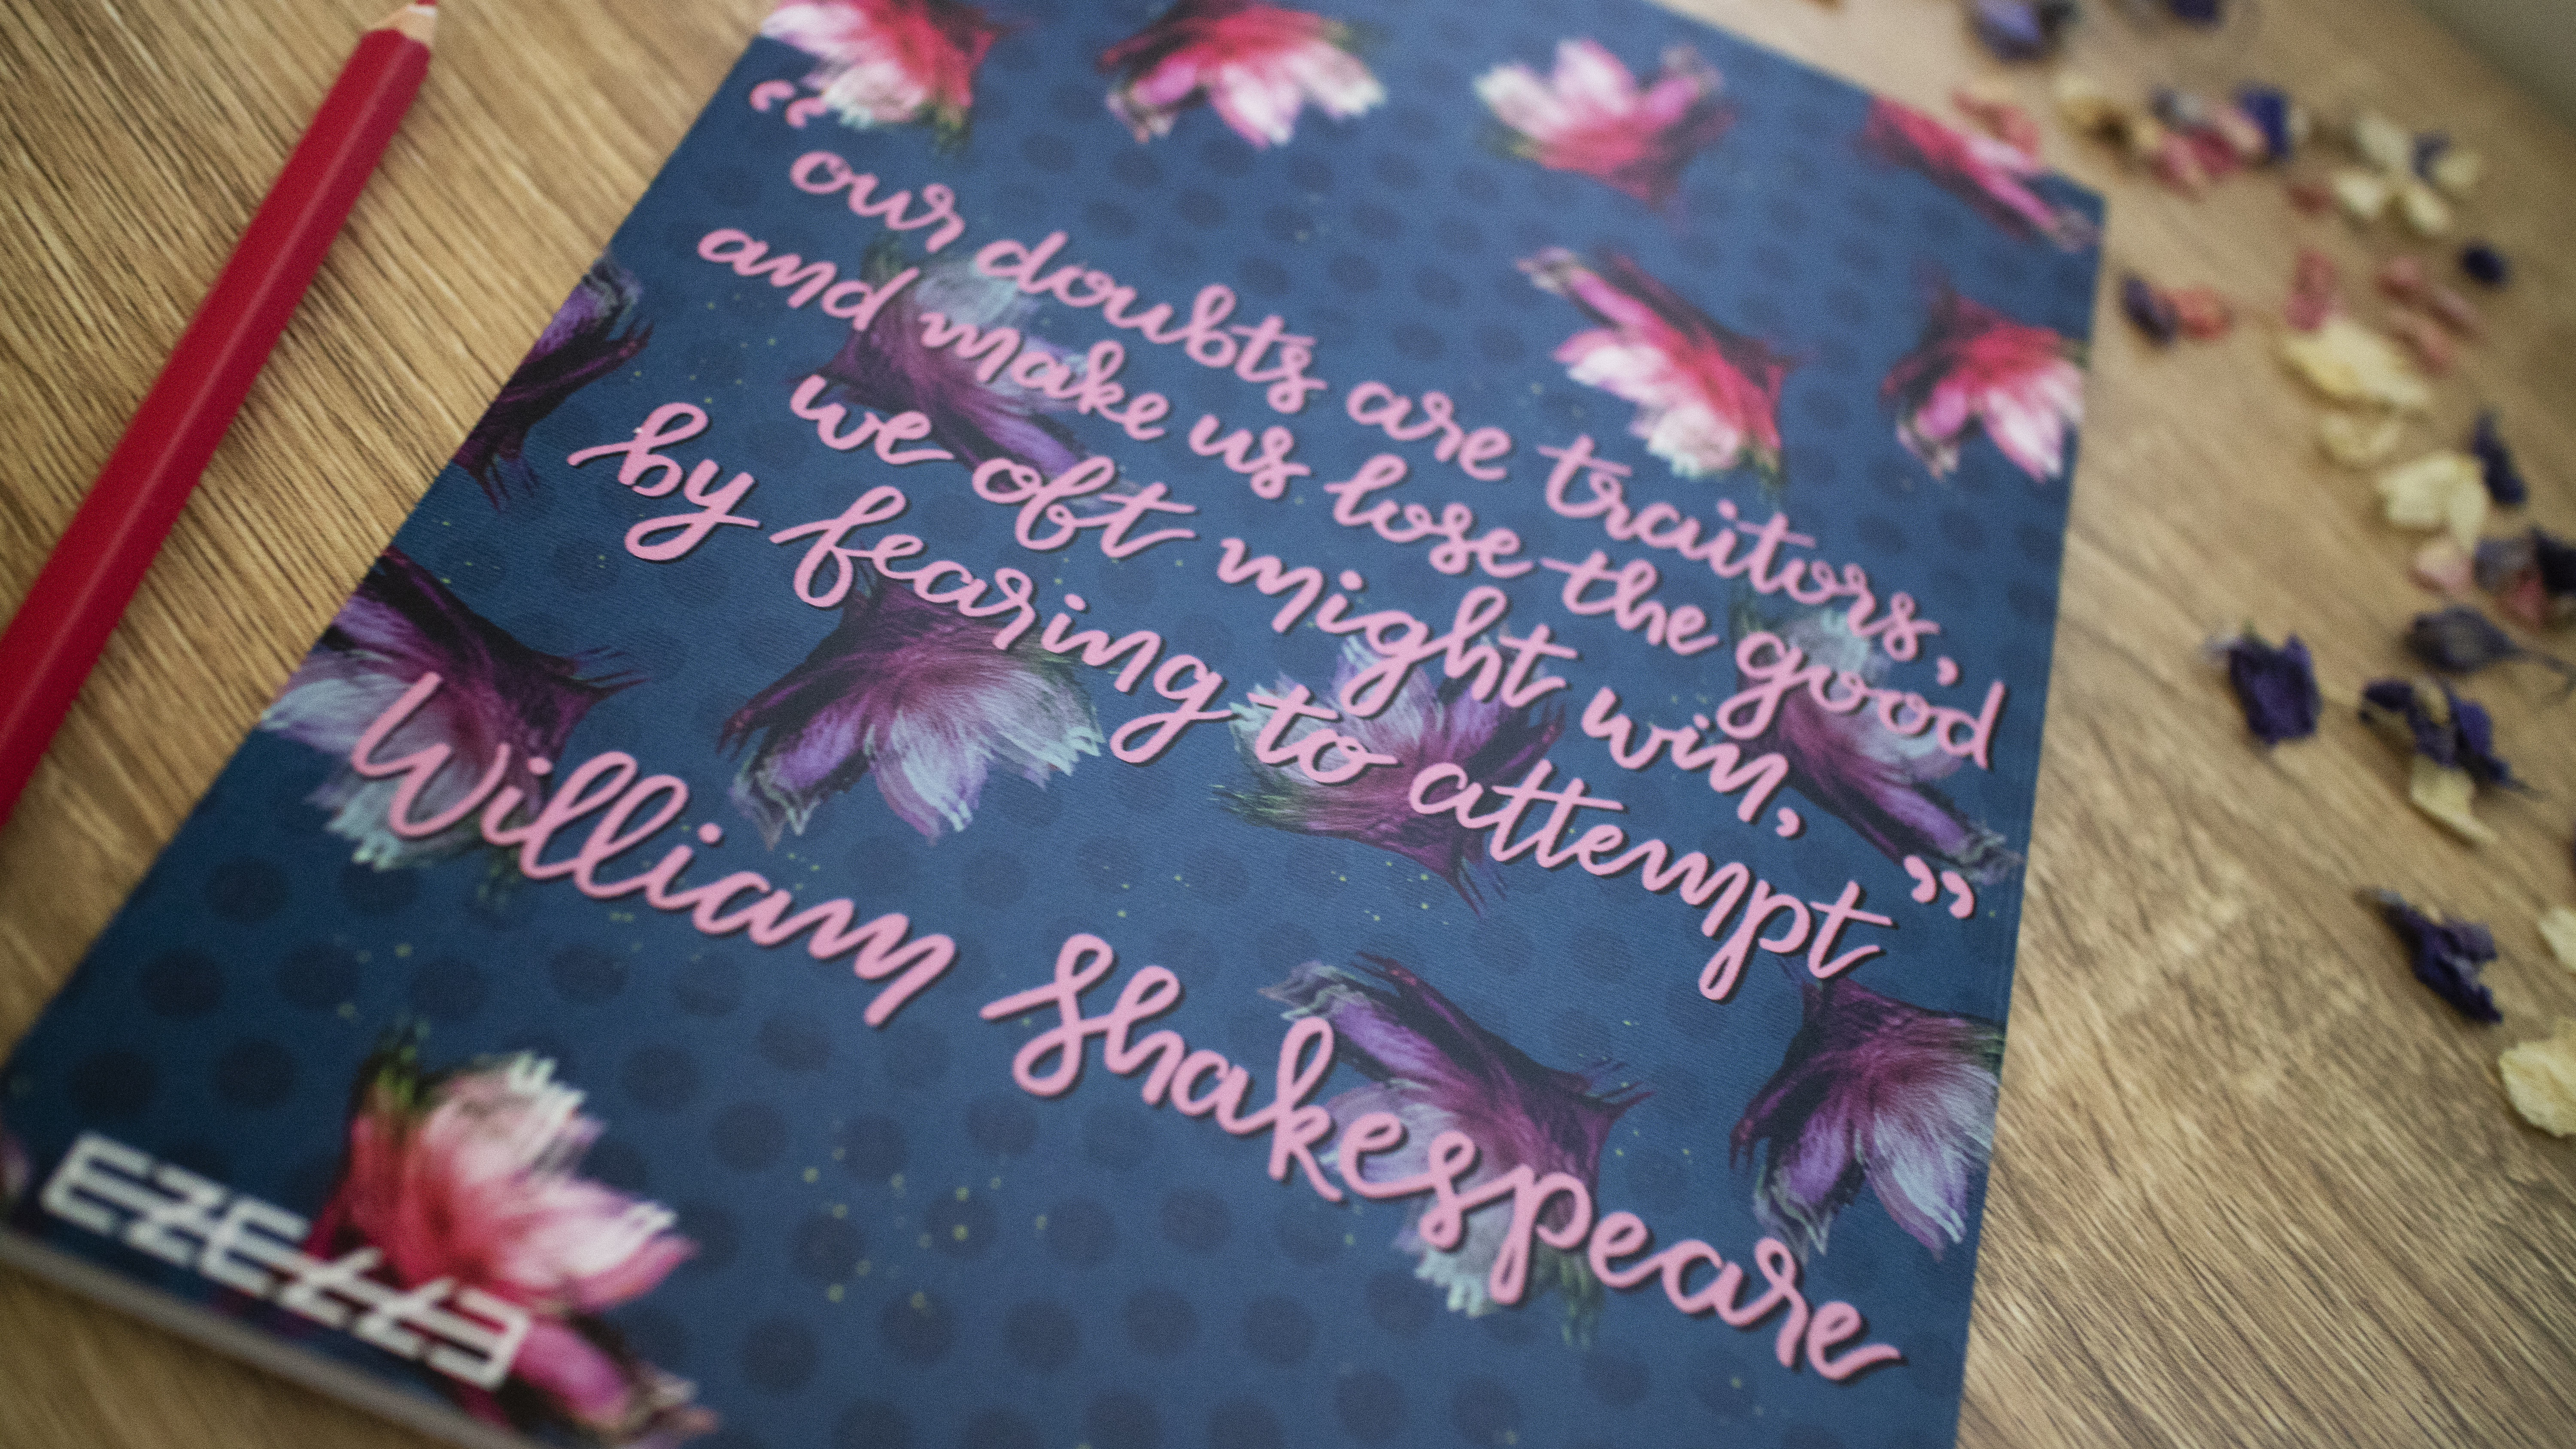 “
our doubts are traitors,
and make us lose the good
we oft might win,
by fearing to attempt”
William Shakespeare